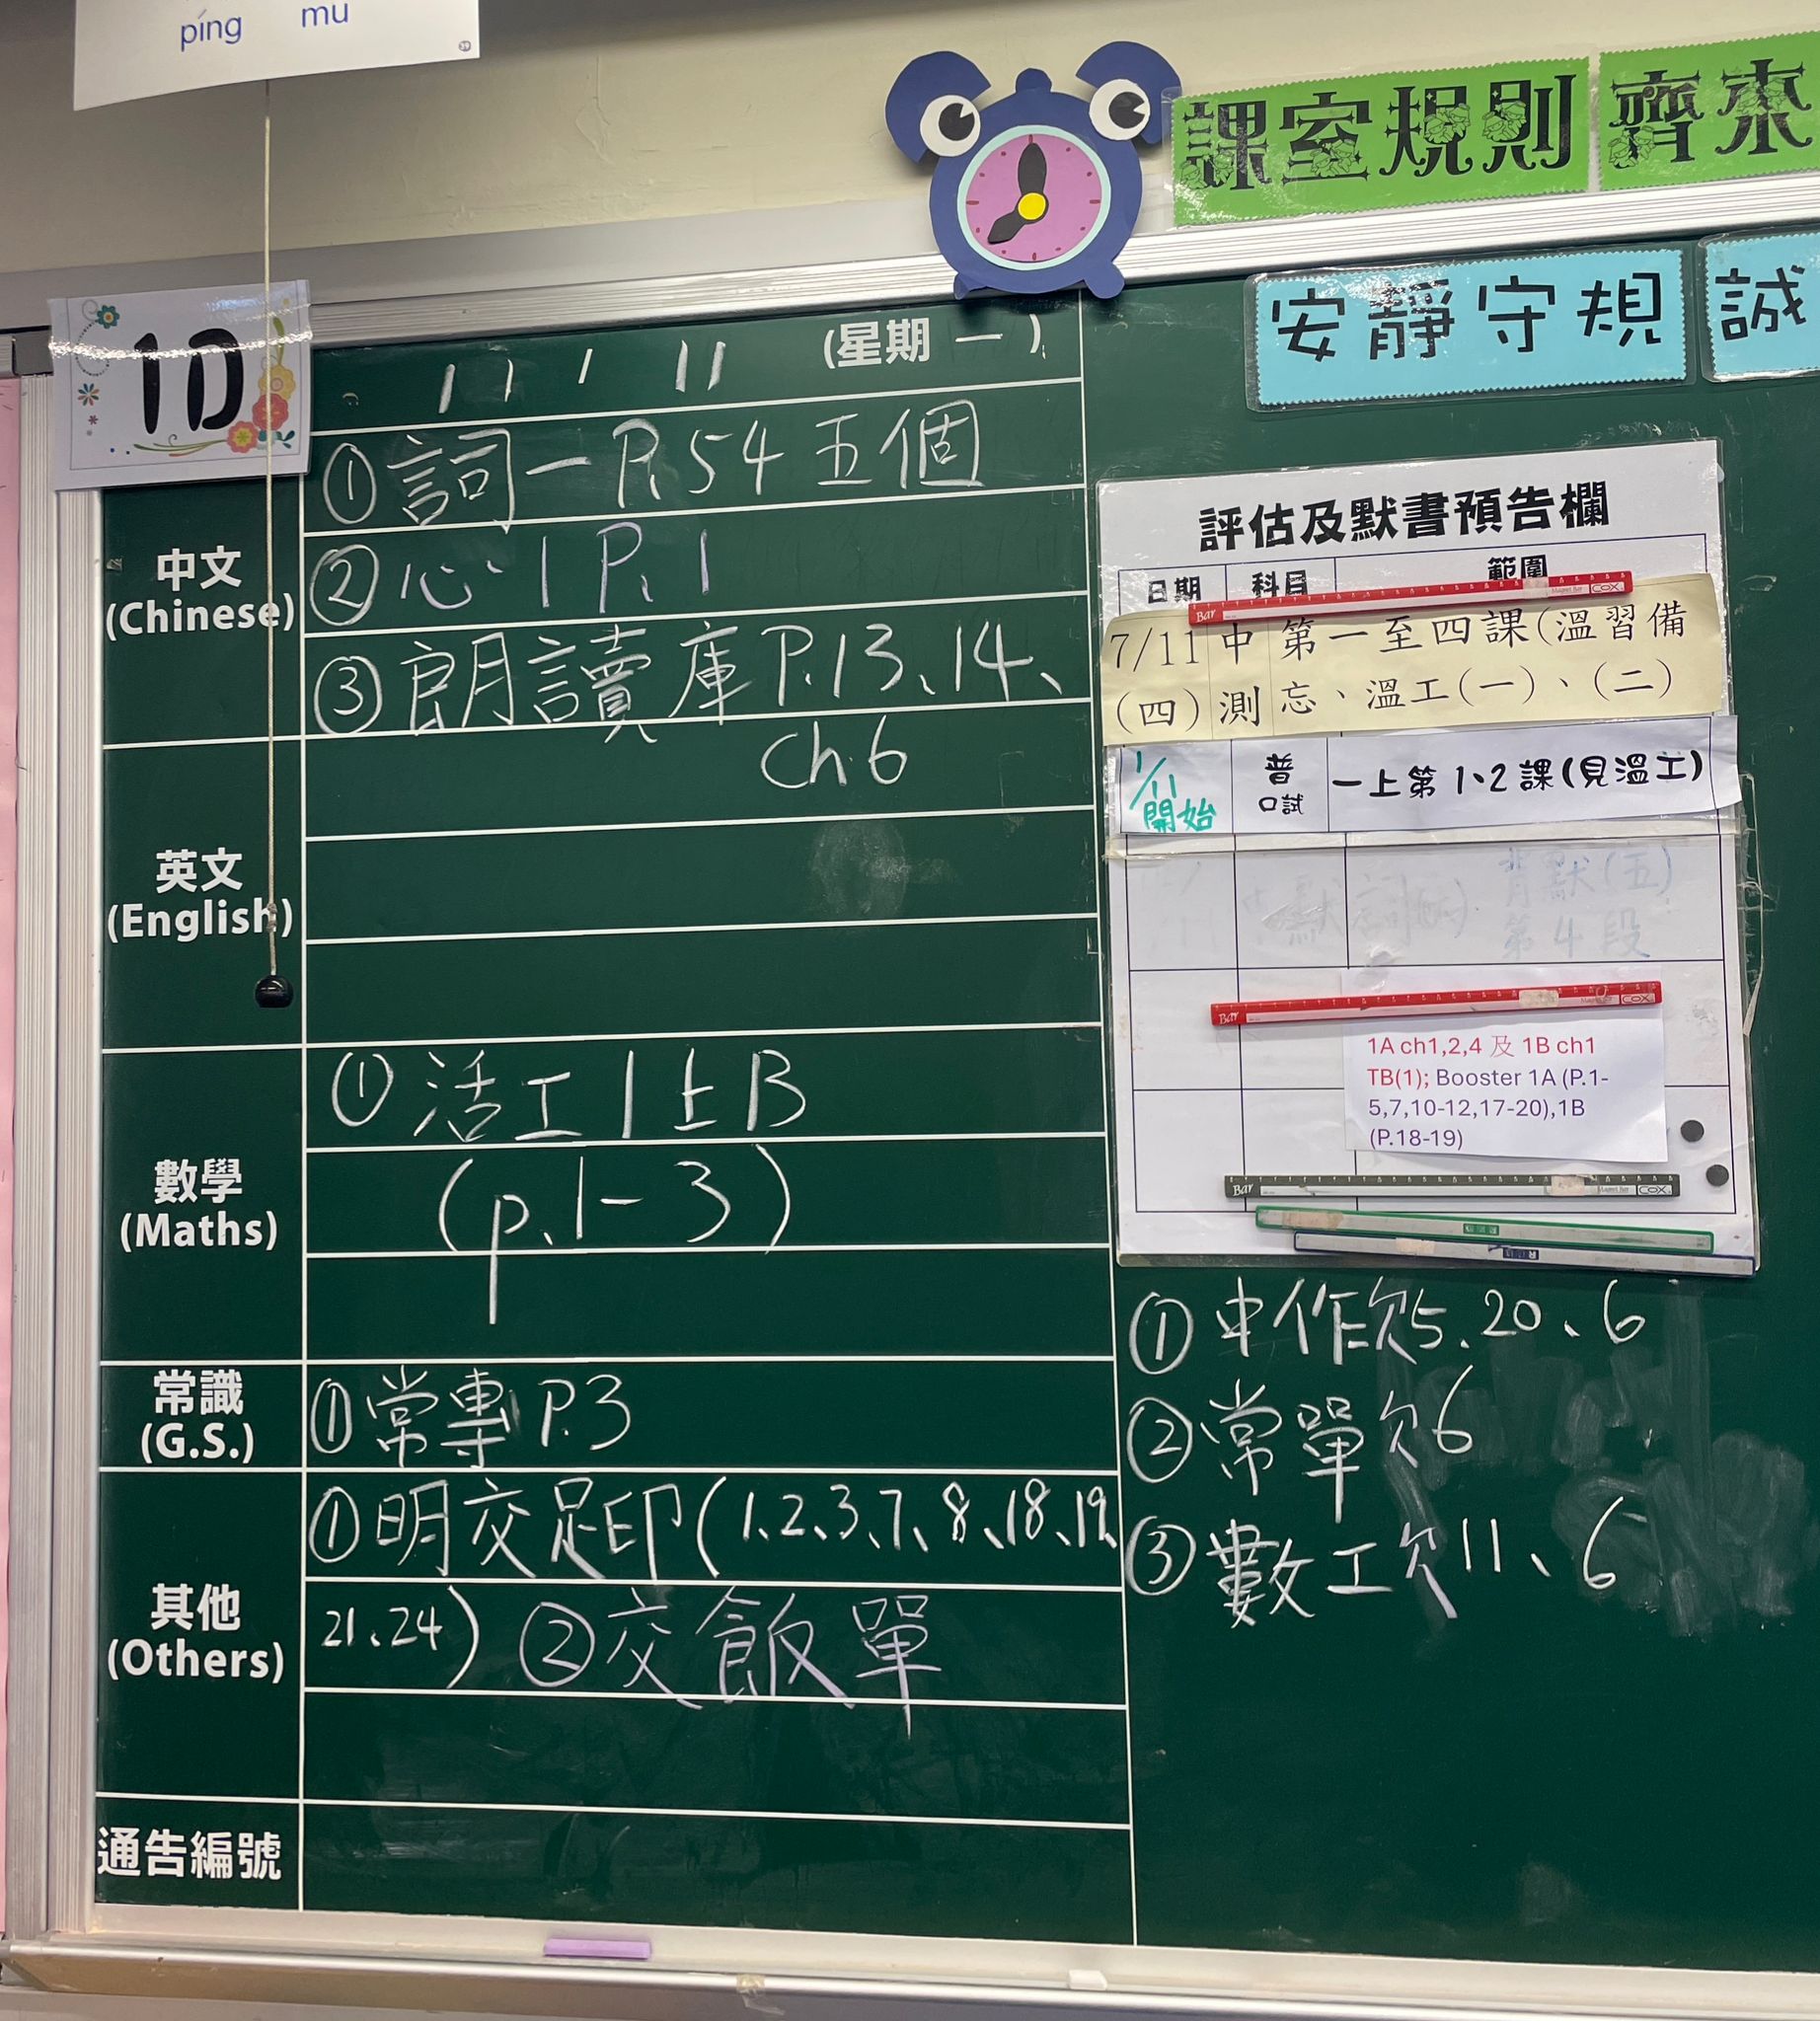 píng mu
課室規則 齊來
安靜守規 誠
1D
11 / 11 (星期一)
中文
(Chinese)
① 詞一 P.54 五個
② 心1 P.1
③ 朗讀庫 P.13、14、
ch.6
英文
(English)
數學
(Maths)
① 活工1上B
(p.1-3)
常識
(G.S.)
① 常專 P.3
其他
(Others)
① 明交足印(1、2、3、7、8、18、19、
21、24) ② 交飯單
通告編號
評估及默書預告欄
日期 科目 範圍
7/11 中 第一至四課(溫習備
(四) 測 忘、溫工(一)、(二)
1/11 開始 普 口試 一上第1、2課(見溫工)
背默(五)
第4段
1A ch1,2,4 及 1B ch1
TB(1); Booster 1A (P.1-
5,7,10-12,17-20),1B
(P.18-19)
① 中作欠5、20、6
② 常單欠6
③ 數工欠11、6